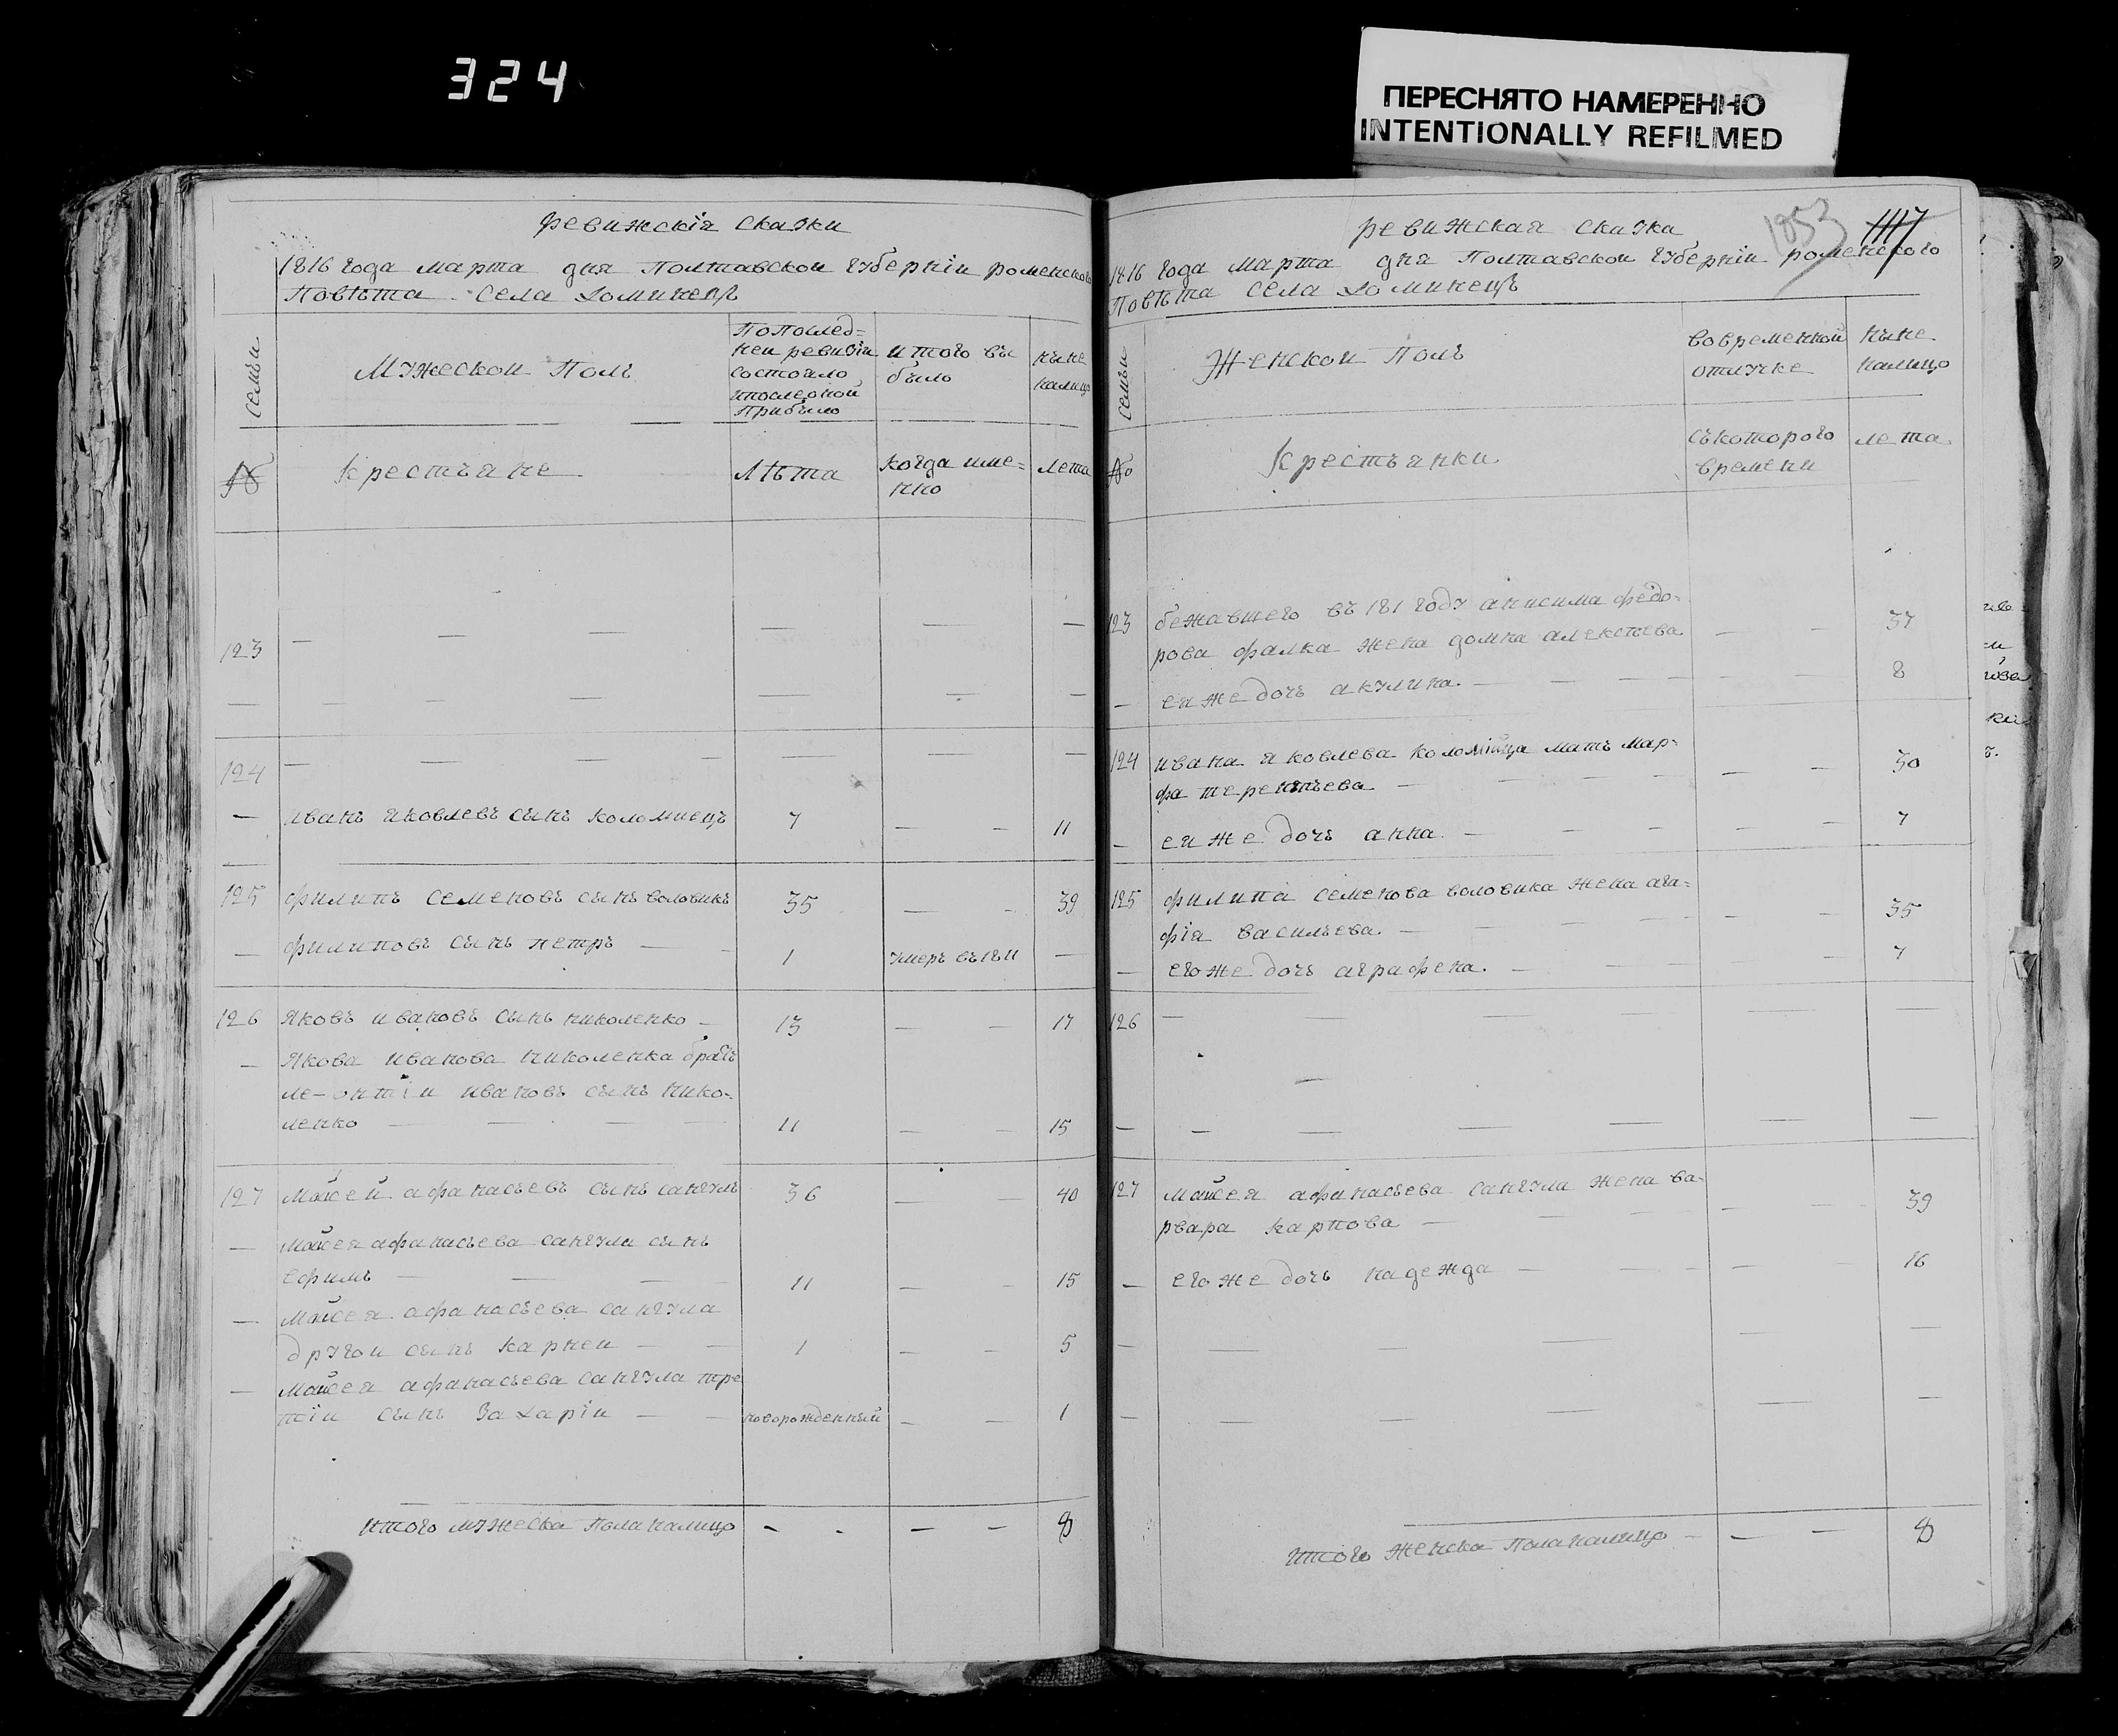 324
ПЕРЕСНЯТО НАМЕРЕННО
INTENTIONALLY REFILMED
ревижскія сказки
1816 года марта дня Полтавской губерніи роменского
Повѣта села Хоминецъ
семьи
Мужескои Полъ
Попослед=
неи ревизіи
состояло
ипослеоной
прибыло
и того вы
было
ныне
налицо
№
крестьяне
лѣта
когда име=
нно
лета
123
124
— иванъ яковлевъ сынъ коломиецъ 7 — — 11
125 филипъ семеновъ сынъ воловикъ 35 — — 39
— филиповъ сынъ петръ — 1 умеръ въ 1811 —
126 яковъ ивановъ сынъ николенко — 13 — — 17
— якова иванова николенка братъ
ле-онтіи ивановъ сынъ нико-
ленко — — — — 11 — — 15
127 Мойсей афанасьевъ сынъ сангулъ 36 — — 40
— мойсея афанасьева сангула сынъ
ефимъ — — — 11 — — 15
— мойсея афанасьева сангула
другои сынъ карпеи — — 1 — — 5
— мойсея афанасьева сангула тре
тіи сынъ Захаріи — — новорожденный — — 1
итого мужеска пола налицо - - — — 8
1053 1117
ревижская сказка
1816 года марта дня Полтавской губерніи роменского
Повѣта села Хоминецъ
семьи
Женскои Полъ
вовременной
отлучке
ныне
налицо
№
крестьянки
съкоторого
времени
лета
123 бежавшего въ 181 году анисима федо-
рова фалка жена домна алексеева — — 37
— ея же дочь акулина. — — — — — — 8
124 ивана яковлева коломійца мать мар-
фа терентьева — — — — — — 30
— ея же дочь анна. — — — — — 7
125 филипа семенова воловика жена ага=
фія васильева. — — — — — — 35
— его же дочь аграфена. — — — — — 7
126
127 мойсея афанасьева сангула жена ва-
рвара карпова — — — — — 39
— его же дочь надежда — — — — — 16
итого женска пола налицо — — — 8